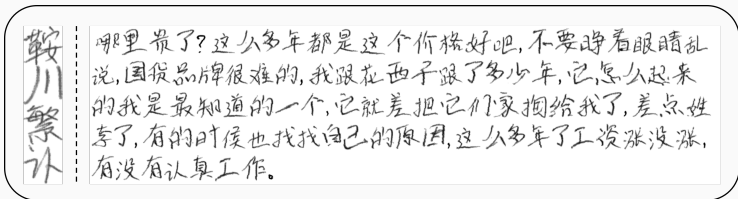 鞍川繁讣
哪里贵了?这么多年都是这个价格好吧,不要睁着眼睛乱
说,国货品牌很难的,我跟花西子跟了多少年,它,怎么起来
的我是最知道的一个,它就差把它们家掏给我了,差点姓
李了,有的时候也找找自己的原因,这么多年了工资涨没涨,
有没有认真工作。